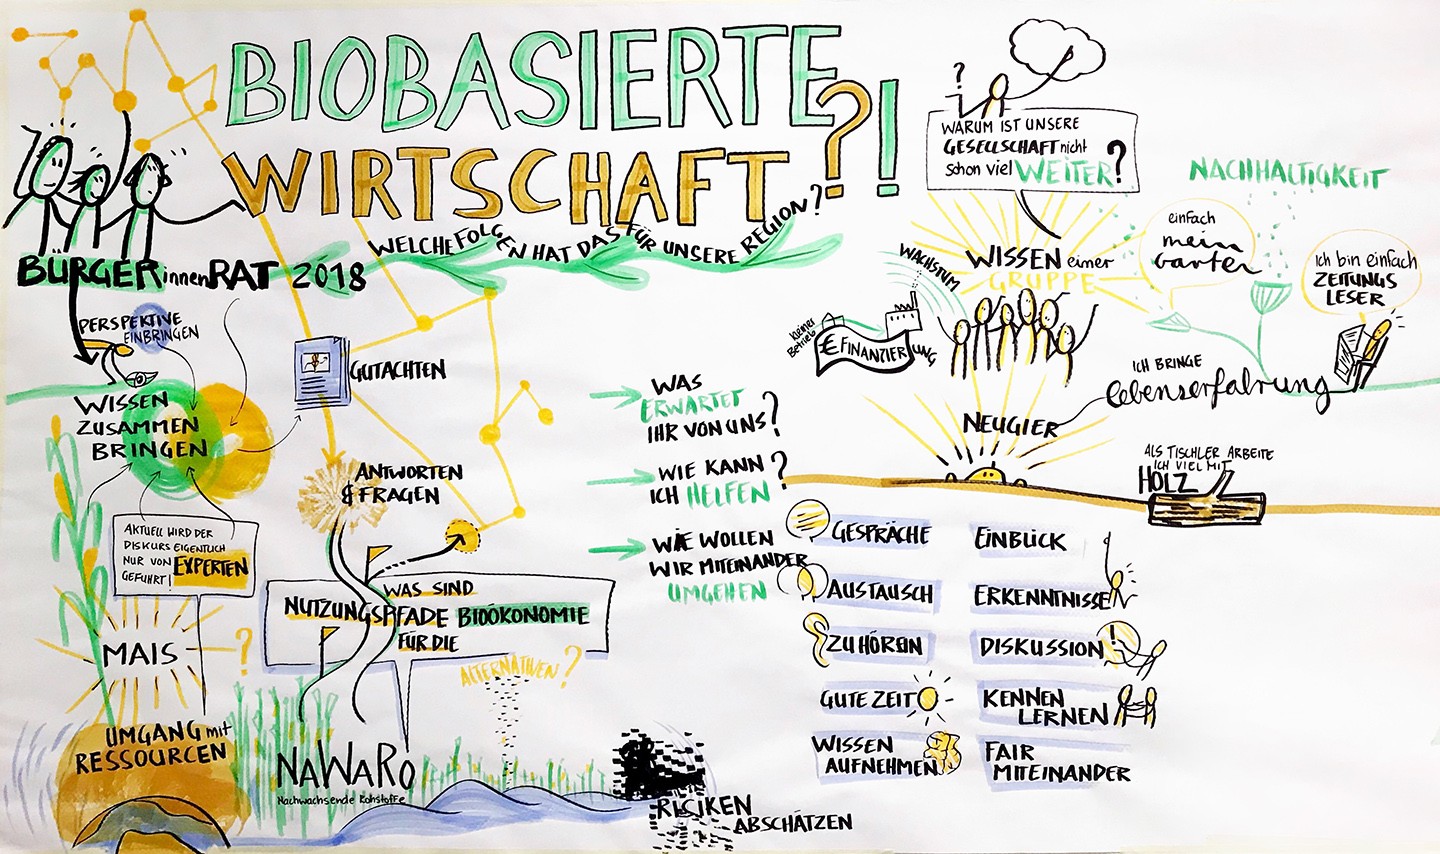 BIOBASIERTE
WIRTSCHAFT?!
WELCHE FOLGEN HAT DAS FÜR UNSERE REGION?
BÜRGERinnenRAT 2018
PERSPEKTIVE
EINBRINGEN
WISSEN
ZUSAMMEN
BRINGEN
AKTUELL WIRD DER
DISKURS EIGENTLICH
NUR VON EXPERTEN
GEFÜHRT!
MAIS
?
UMGANG mit
RESSOURCEN
GUTACHTEN
ANTWORTEN
& FRAGEN
WAS SIND
NUTZUNGSPFADE BIOÖKONOMIE
FÜR DIE
ALTERNATIVEN?
NaWaRo
Nachwachsende Rohstoffe
RISIKEN
ABSCHÄTZEN
WAS
ERWARTET
IHR VON UNS?
WIE KANN
ICH HELFEN?
WIE WOLLEN
WIR MITEINANDER
UMGEHEN
?
WARUM IST UNSERE
GESELLSCHAFT nicht
schon viel WEITER?
WISSEN einer
GRUPPE
WACHSTUM
kleiner
Betrieb
€ FINANZIERUNG
NACHHALTIGKEIT
einfach
mein
Garten
Ich bin einfach
ZEITUNGS
LESER
ICH BRINGE
lebenserfahrung
NEUGIER
ALS TISCHLER ARBEITE
ICH VIEL MIT
HOLZ
GESPRÄCHE
AUSTAUSCH
ZUHÖREN
GUTE ZEIT
WISSEN
AUFNEHMEN
EINBLICK
ERKENNTNISSE
DISKUSSION
!
KENNEN
LERNEN
FAIR
MITEINANDER